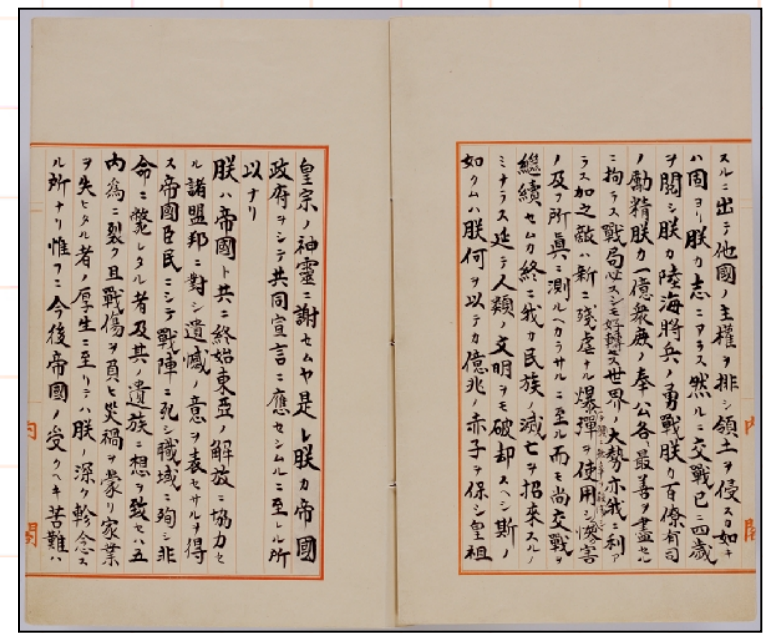 スルニ出テ他國ノ主權ヲ排シ領土ヲ侵スカ如キ
ハ固ヨリ朕カ志ニアラス然ルニ交戰已ニ四歳
ヲ閲シ朕カ陸海將兵ノ勇戰朕カ百僚有司
ノ勵精朕カ一億衆庶ノ奉公各最善ヲ盡セル
ニ拘ラス戰局必スシモ好轉セス世界ノ大勢亦我ニ利ア
ラス加之敵ハ新ニ殘虐ナル爆彈ヲ使用シテ頻ニ無辜ヲ殺傷シ惨害
ノ及フ所眞ニ測ルヘカラサルニ至ル而モ尚交戰ヲ
繼續セムカ終ニ我カ民族ノ滅亡ヲ招来スルノ
ミナラス延テ人類ノ文明ヲモ破却スヘシ斯ノ
如クムハ朕何ヲ以テカ億兆ノ赤子ヲ保シ皇祖
内閣
皇宗ノ神靈ニ謝セムヤ是レ朕カ帝國
政府ヲシテ共同宣言ニ應セシムルニ至レル所
以ナリ
朕ハ帝國ト共ニ終始東亞ノ解放ニ協力セ
ル諸盟邦ニ對シ遺憾ノ意ヲ表セサルヲ得
ス帝國臣民ニシテ戰陣ニ死シ職域ニ殉シ非
命ニ斃レタル者及其ノ遺族ニ想ヲ致セハ五
内爲ニ裂ク且戰傷ヲ負ヒ災禍ヲ蒙リ家業
ヲ失ヒタル者ノ厚生ニ至リテハ朕ノ深ク軫念ス
ル所ナリ惟フニ今後帝國ノ受クヘキ苦難ハ
内閣